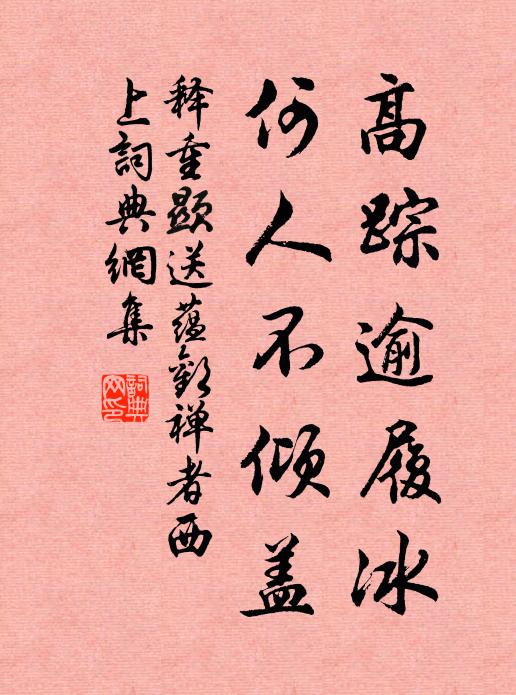 高踪逾履冰
何人不倾盖
释重显送蕴观禅者西
上词典網集
詞典網印